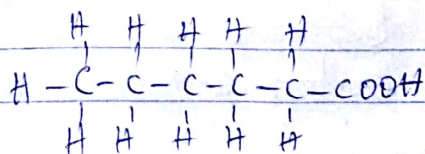 H H H H H
H - C - C - C - C - C - COOH
H H H H H